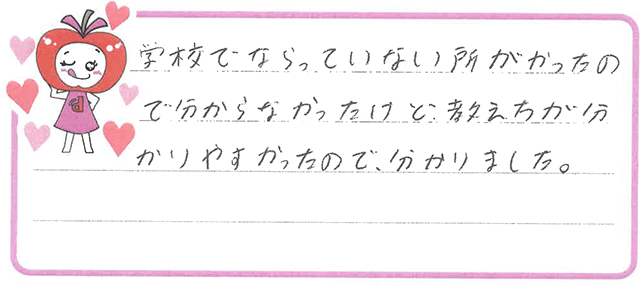 学校でならっていない所がかったの
で分からなかったけど、教え方が分
かりやすかったので、分かりました。